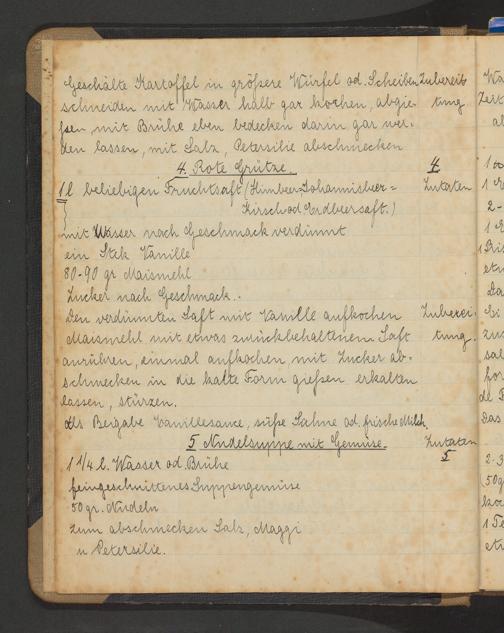 Geschälte Kartoffel in größere Würfel od. Scheiben Zuberei-
schneiden mit Wasser halb gar kochen, abgie- tung
ßen, mit Brühe eben bedecken darin gar wer-
den lassen, mit Salz, Petersilie abschmecken
4. Rote Grütze. 4
1 l beliebigen Fruchtsaft (Himbeer-Johannisbeer= Zutaten
Kirsch od Erdbeersaft.)
mit Wasser nach Geschmack verdünnt
ein Stck Vanille
80-90 gr Maismehl
Zucker nach Geschmack..
Den verdünnten Saft mit Vanille aufkochen Zuberei-
Maismehl mit etwas zurückbehaltenem Saft tung.
anrühren, einmal aufkochen mit Zucker ab-
schmecken in die kalte Form gießen erkalten
lassen, stürzen.
Als Beigabe Vanillesauce, süße Sahne od. frische Milch.
5 Nudelsuppe mit Gemüse. Zutaten
1 1/4 l. Wasser od. Brühe 5
feingeschnittenes Suppengemüse
50 gr. Nudeln
zum abschmecken Salz, Maggi
u Petersilie.